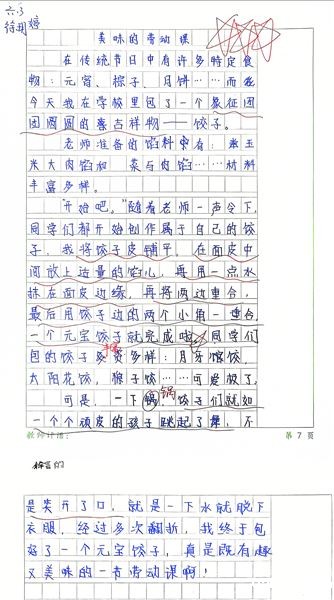 六.3
美味的劳动课
在传统节日中有许多特定食
物:元宵、粽子、月饼……而我
今天我在学校里包了一个象征团
团圆圆的蒙古祥物——饺子。
老师准备的馅料中有:玉
米大肉馅和 菜与肉馅……材料
丰富多样。
“开始吧。”随着老师一声令下,
同学们都开始创作属于自己的饺
子,我将饺子皮铺平,在面皮中
间放上适量的馅儿,再用一点水
抹在面皮边缘,再将两边重合,
最后用饺子边的两个小角一重合,
一个元宝饺子就完成啦 同学们
包的饺子 多样:月牙馄饨,
太阳花饺,猴子饺……可爱极了,
锅
可是,一下锅,饺子们就如
一个个顽皮的孩子跳起了舞,不
教师评语: 第7页
是笑开了口,就是一下水就脱下
衣服,经过多次翻折,我终于包
好了一个元宝饺子,真是既有趣
又美味的一节劳动课啊!